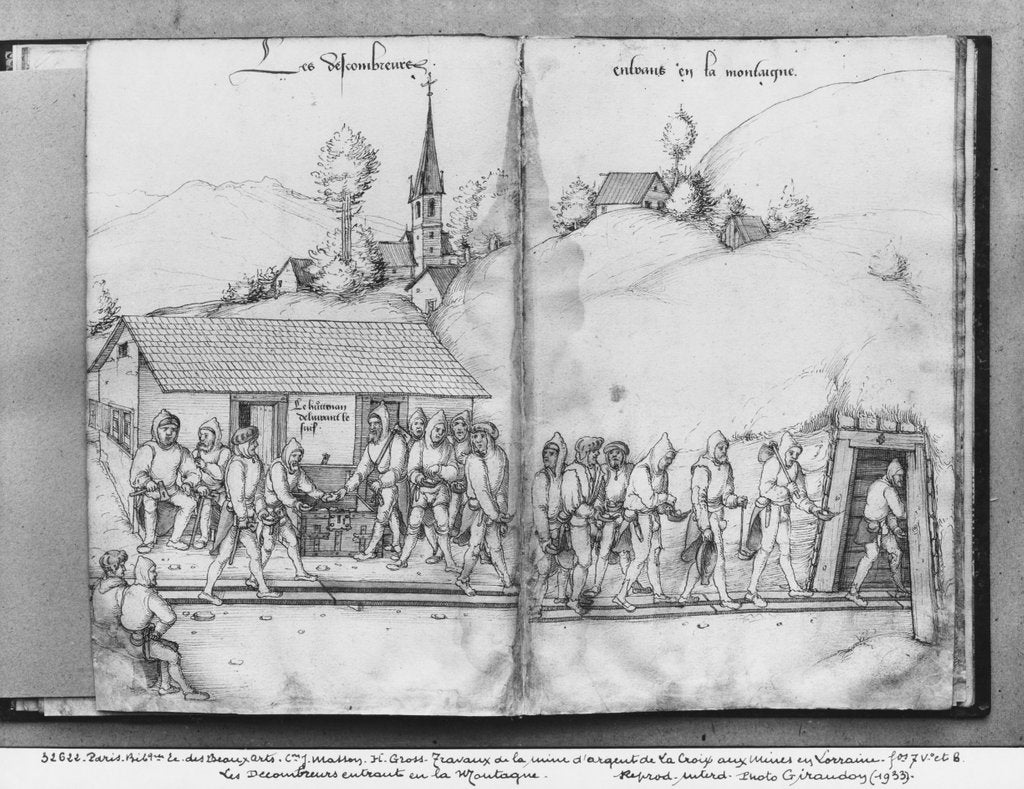 Les descombreurs
entrans en la montaigne.
Le hutteman
delivrant le
suif
32622. Paris. Bibl. Ec. des Beaux Arts. Con J. Masson. H. Gross. Travaux de la mine d'argent de La Croix aux Mines en Lorraine. fos 7 Vo et 8.
Les Décombreurs entrant en la Montagne. Reprod. interd. Photo Giraudon (1933).